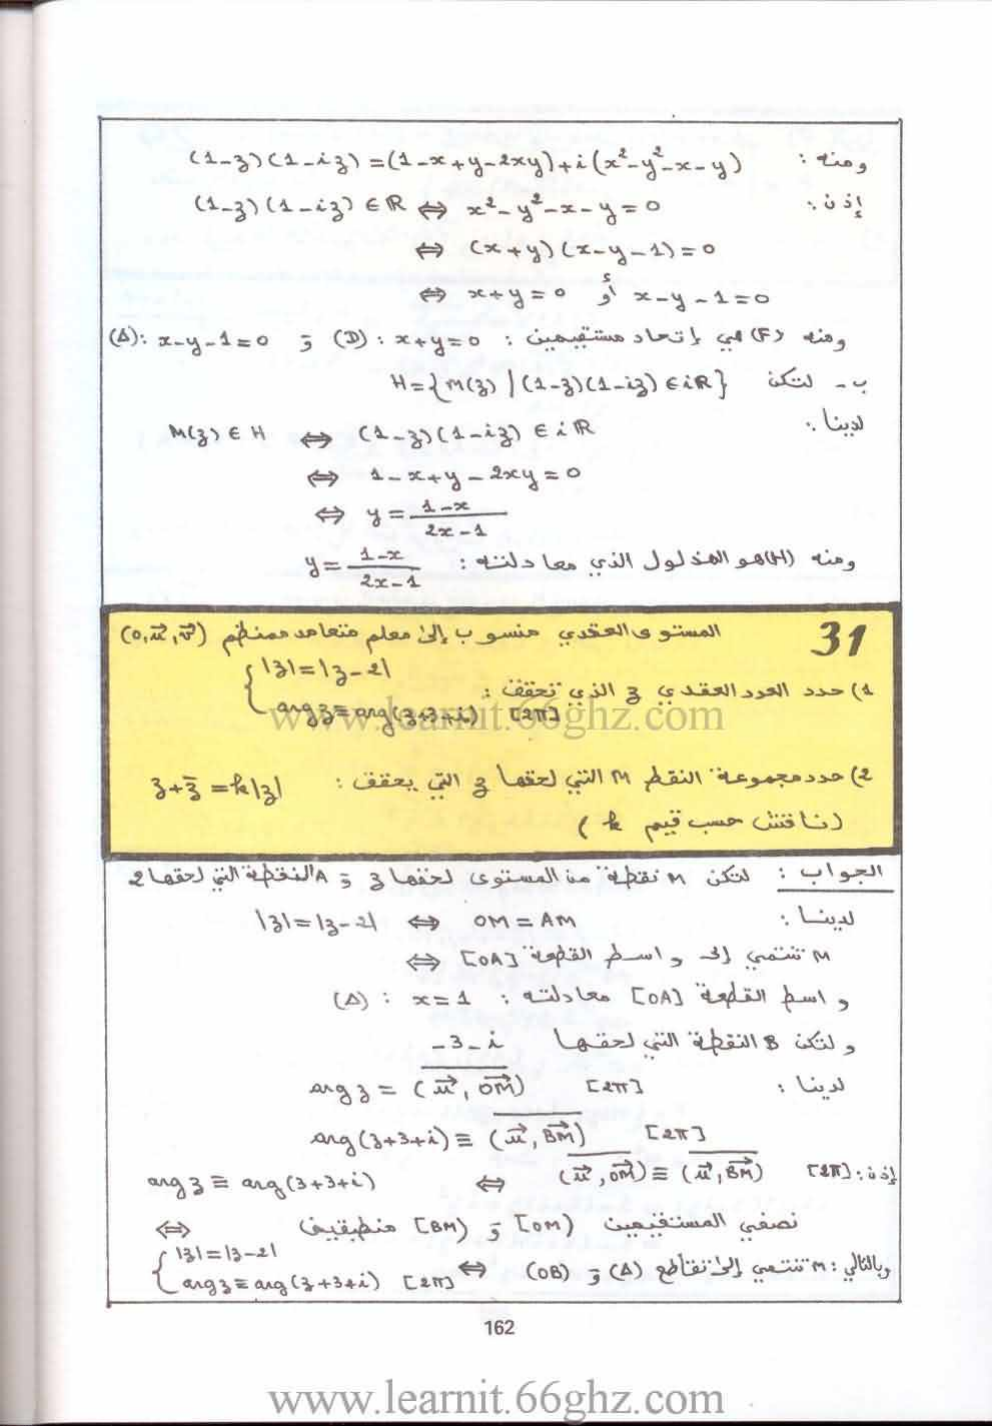 ومنه : (1-z)(1-iz) = (1-x+y-2xy)+i(x²-y²-x-y)
إذن : (1-z)(1-iz) ∈ ℝ ⇔ x²-y²-x-y=0
⇔ (x+y)(x-y-1)=0
⇔ x+y=0 أو x-y-1=0
ومنه (F) هي إتحاد مستقيمين : (D) : x+y=0 و (Δ): x-y-1=0
ب- لتكن H={M(z) | (1-z)(1-iz) ∈ iℝ}
لدينا : M(z) ∈ H ⇔ (1-z)(1-iz) ∈ iℝ
⇔ 1-x+y-2xy=0
⇔ y = (1-x)/(2x-1)
ومنه (H) هو الهذلول الذي معادلته : y = (1-x)/(2x-1)
31 المستوى العقدي منسوب إلى معلم متعامد ممنظم (o,u⃗,v⃗)
1) حدد العدد العقدي z الذي تحقق : { |z|=|z-2|
arg z ≡ arg(z+3+i) [2π]
www.learnit.66ghz.com
2) حدد مجموعة النقط M التي لحقها z التي يحقق : z+z̄ =k|z|
(ناقش حسب قيم k)
الجواب : لتكن M نقطة من المستوى لحقها z و A النقطة التي لحقها 2
لدينا : |z|=|z-2| ⇔ OM = AM
⇔ M تنتمي إلى واسط القطعة [OA]
واسط القطعة [OA] معادلته : (Δ) : x=1
ولتكن B النقطة التي لحقها -3-i
لدينا : arg z = (u⃗, OM⃗) [2π]
arg(z+3+i) ≡ (u⃗, BM⃗) [2π]
إذن : [2π] (u⃗,OM⃗) ≡ (u⃗,BM⃗) ⇔ arg z ≡ arg(z+3+i)
⇔ نصفي المستقيمين [OM) و [BM) منطبقين
وبالتالي : M تنتمي إلى تقاطع (Δ) و (OB) ⇔ { |z|=|z-2|
arg z ≡ arg(z+3+i) [2π]
162
www.learnit.66ghz.com